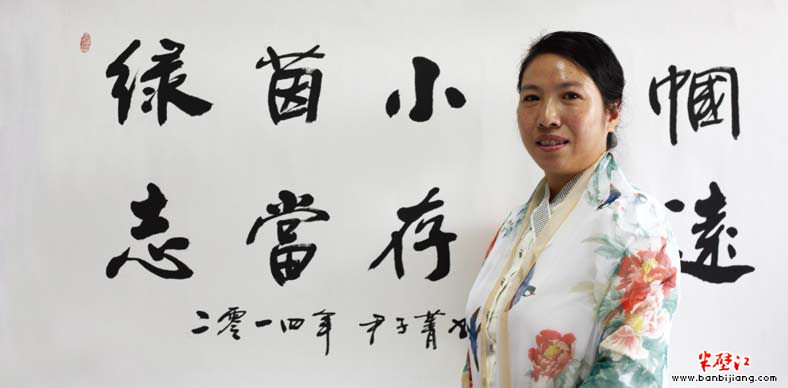 绿茵小帼
志當存遠
二零一四年 尹子菁
半壁江
www.banbijiang.com